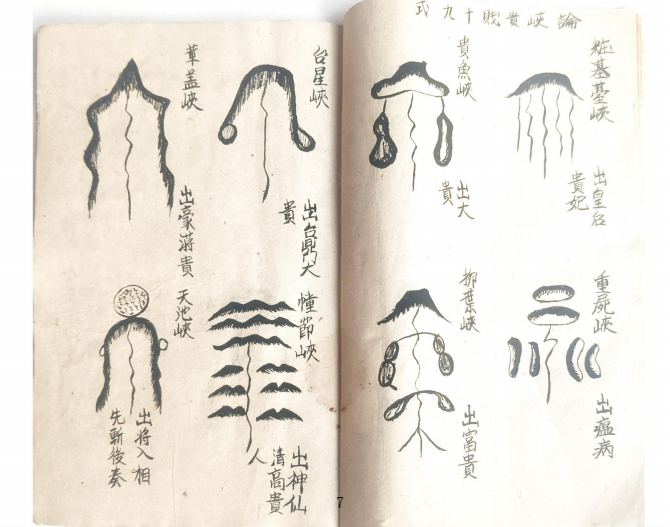 論峽貴賤十九式
粧基臺峽
出皇后
貴妃
貴魚峽
出大
貴
重屍峽
出瘟病
柳葉峽
出富貴
台星峽
出台鼎大
貴
華盖峽
出豪蔣貴
幢節峽
出神仙
清高貴
人
天池峽
出将入相
先斬後奏
7